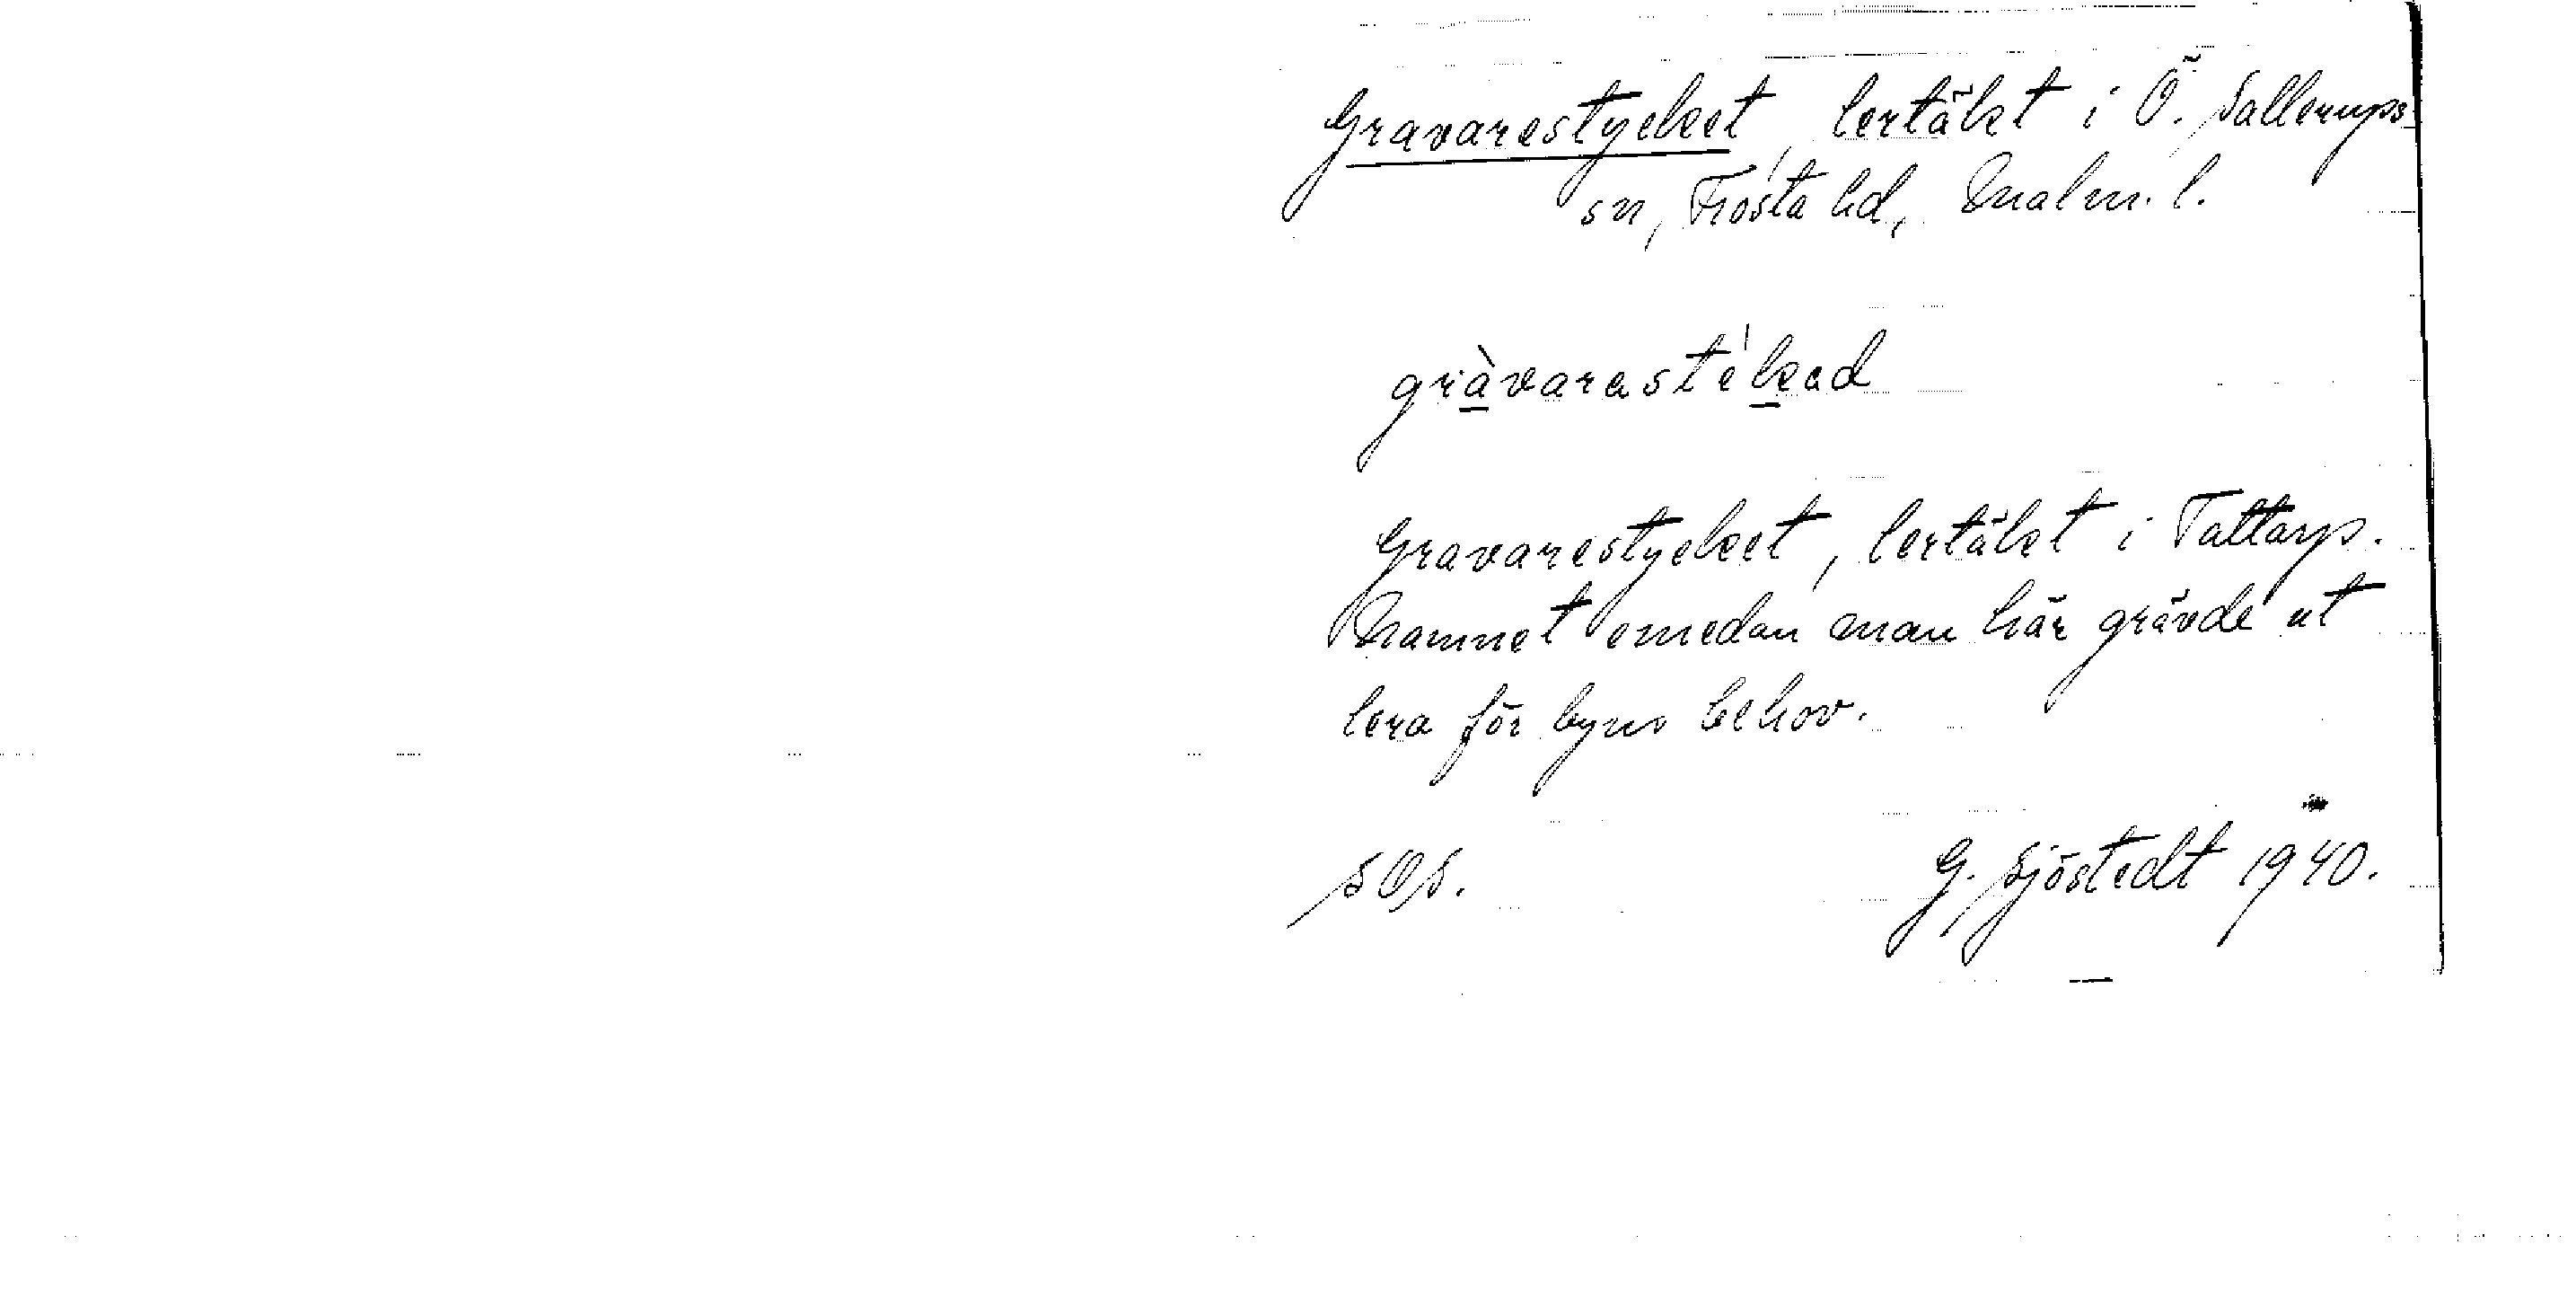 Gravarestycket, lertäkt i Ö. Sallerups
sn, Frosta hd, Malm. l.
gràvarastékad
Gravarestycket, lertäkt i Tattarp.
Namnet emedan man här grävde ut
lera för byns behov.
SOS.
G. Sjöstedt 1940.